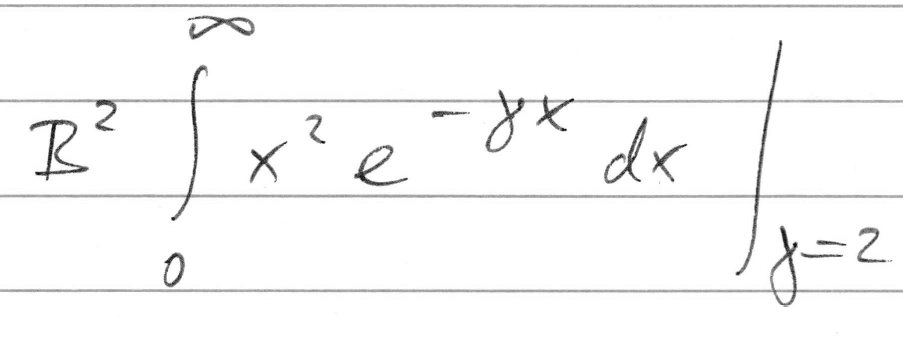 B² ∫₀^∞ x² e^{-γx} dx |_{γ=2}